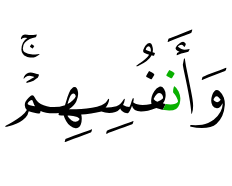 وَأَنفُسِهِمْ ۚ